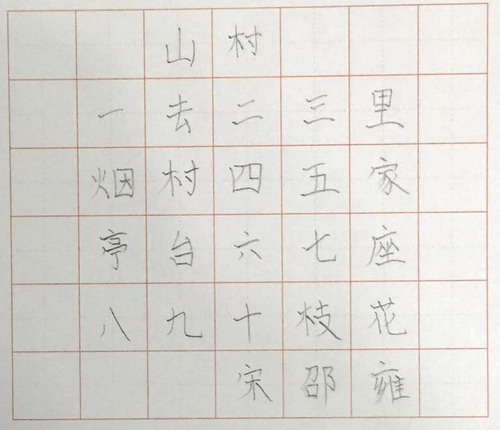 山村
一去二三里
烟村四五家
亭台六七座
八九十枝花
宋邵雍